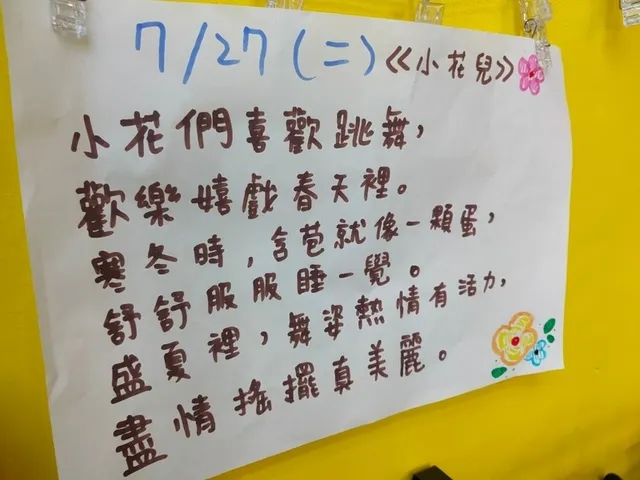 7/27(二)《小花兒》
小花們喜歡跳舞，
歡樂嬉戲春天裡。
寒冬時，含苞就像一顆蛋，
舒舒服服睡一覺。
盛夏裡，舞姿熱情有活力，
盡情搖擺真美麗。